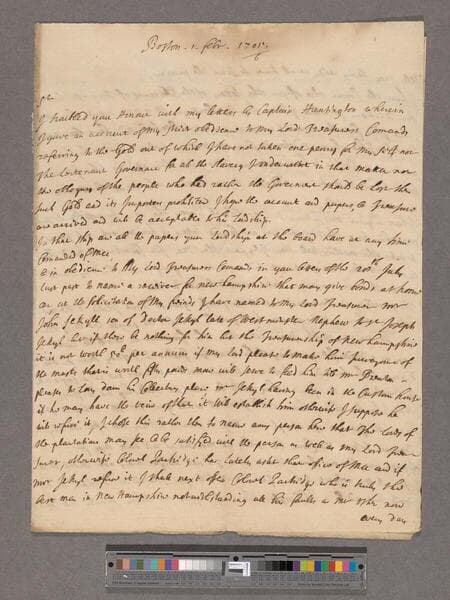 Boston. 1. febr. 1705/6
Sr.
I troubled you Honour with my letters by Captain Huntington wherein
I gave an account of my strict obedience to my Lord Treasurers Comands
referring to the Gold out of which I have not taken one penny for my self nor
the Lieutenant Governour for all the slavery I underwent in that matter nor
the of the people who had rather the Governour should be lost then
such Gold and its Importers prohibited I hope the account and papers, & Treasure
are arrived and will be acceptable to his Lordship.
In that ship are all the papers your Lordship at the board have at any time
Comanded of Mee
& in obedience to My Lord Treasurers Comands in your letter of the 20th July
last past to name a receiver for new hampshire that may give bonds at home
on at the solicitation of My friends I have named to My Lord Treasurer mr
John Jekyll son of Doctor Jekyl late of Westminster Nephew to Sr Joseph
Jekyl but if there be nothing for him but the Treasurership of New hampshire
it is not worth 50l per annum if my lord please to make him purveyor of
the masts that is worth fifty pounds more will serve to feed him till mr
please to lay down his Collectors place mr Jekyl having been in the Custom house
if he may have the of that it will establish him otherwise I suppose he
will refuse it, I chose this rather then to name any person here that The Lords of
the plantations may be satisfied with the person as well as my Lord Trea-
surer, otherwise Colonel Partridge has lately askt that office of Mee and if
mr Jekyl refuse it I shall next offer Colonel Partridge who is truly the
best man in New Hampshire notwithstanding all his faults & mr Usher now
every day